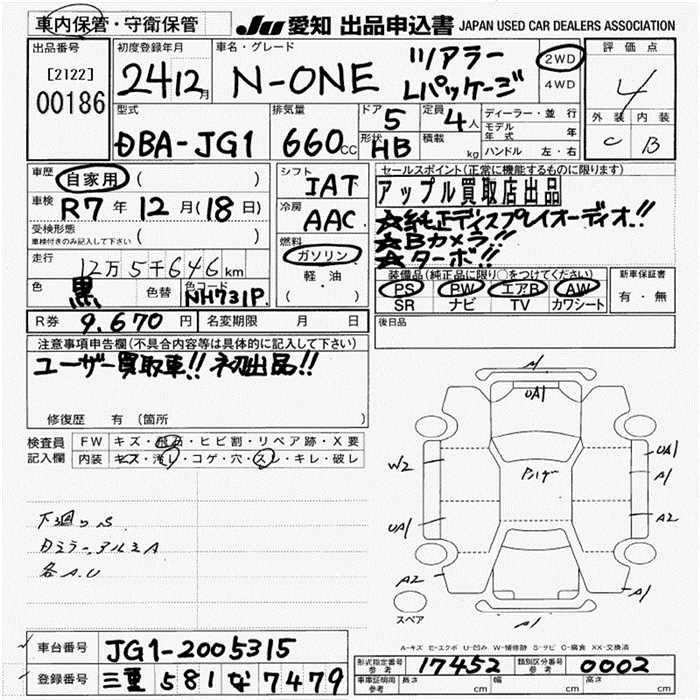 車内保管・守衛保管 JU 愛知 出品申込書 JAPAN USED CAR DEALERS ASSOCIATION
出品番号 初度登録年月 車名・グレード 2WD 4WD 評価点
[2122] 00186 24 12月 N-ONE ツアラー Lパッケージ 4
型式 排気量 ドア 5 定員 4人 ディーラー・並行 外装 内装
DBA-JG1 660cc 形状 HB 積載 kg モデル年式 年 C B
ハンドル 左・右
車歴 自家用 ( ) シフト IAT セールスポイント(正常に機能するものに限ります)
車検 R7年 12月(18日) 冷房 AAC アップル買取店出品
受検形態 ( ) ☆純正ディスプレイオーディオ!!
車検付きのみ記入して下さい 燃料 ☆Bカメラ!!
走行 12万5千646km ガソリン ☆ターボ!!
色 黒 色替 色コード NH731P 軽・油 ( ) 装備品(純正品に限り○をつけてください) 新車保証書
PS PW エアB AW 有・無
SR ナビ TV カワシート
R券 9,670円 名変期限 月 日 後日品
注意事項申告欄(不具合内容等は具体的に記入して下さい)
ユーザー買取車!! 初出品!!
修復歴 有 (箇所 )
検査員 FW キズ・飛石・ヒビ割・リペア跡・X要
記入欄 内装 キズ・汚レ・コゲ・穴・スレ・キレ・破レ
下廻りS
各A.U
UA1
W2
UA1
A2
UA1
A1
A2
A1
A1
スペア
A-キズ E-エクボ U-凹み W-補修跡 S-サビ C-腐食 XX-交換済
車台番号 JG1-2005315
登録番号 三重 581 な 7479
型式指定番号 参考 17452 類別区分番号 参考 0002
車庫証明用 参考 長さ cm 幅 cm 高さ cm